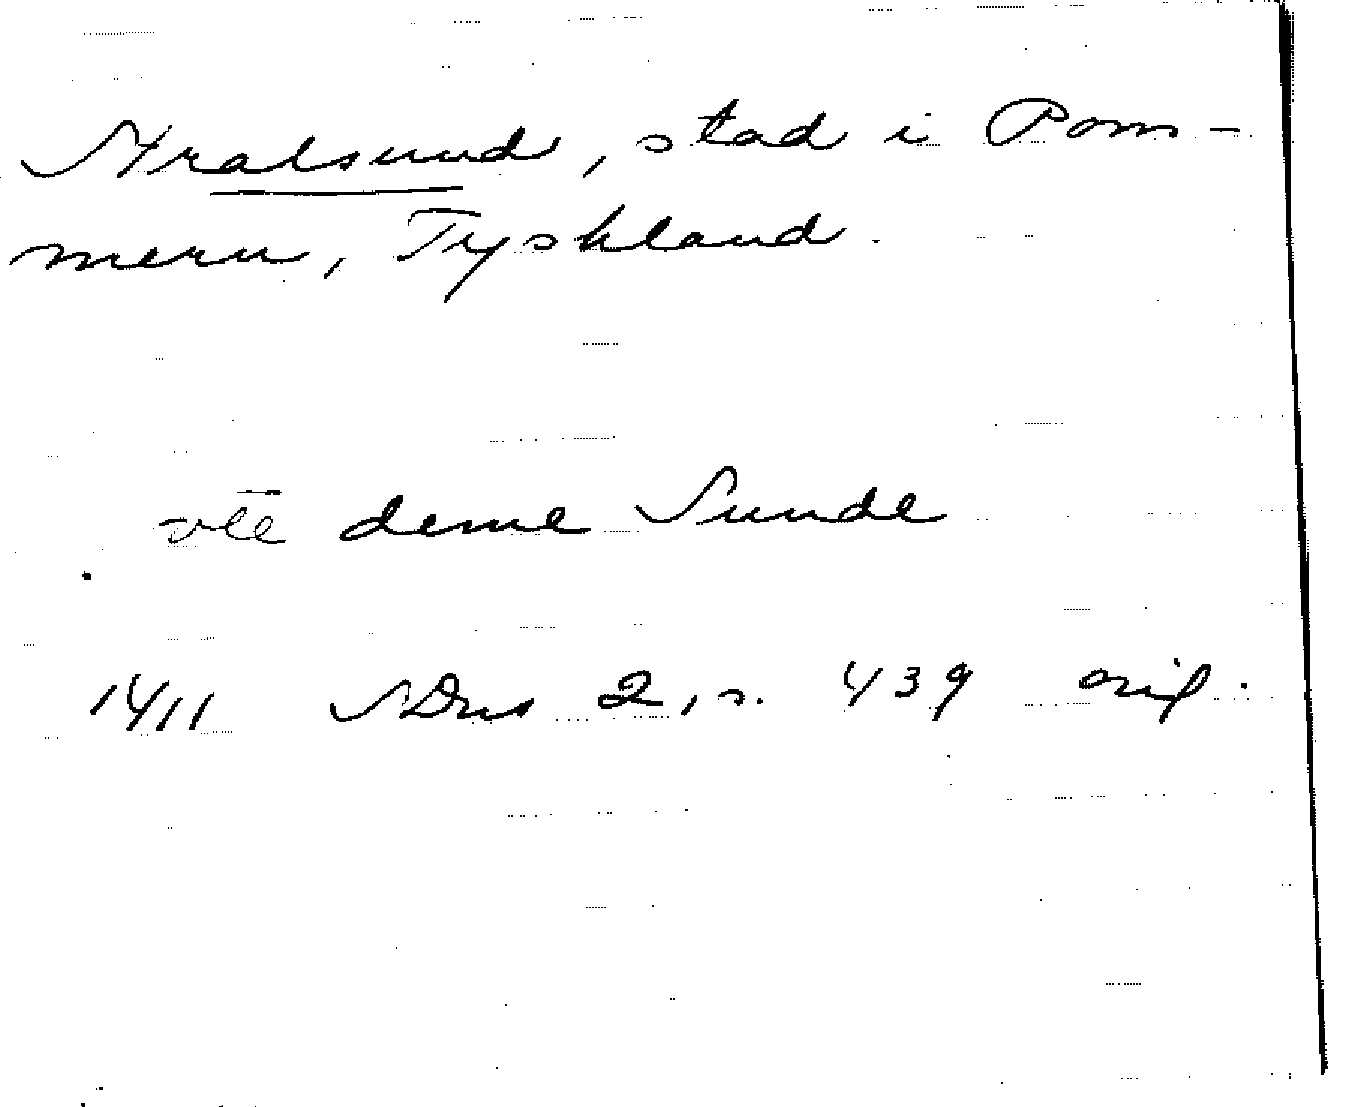 Stralsund, stad i Pom-
mern, Tyskland.
deme Sunde
1411 SDns 2, s. 439 orig.